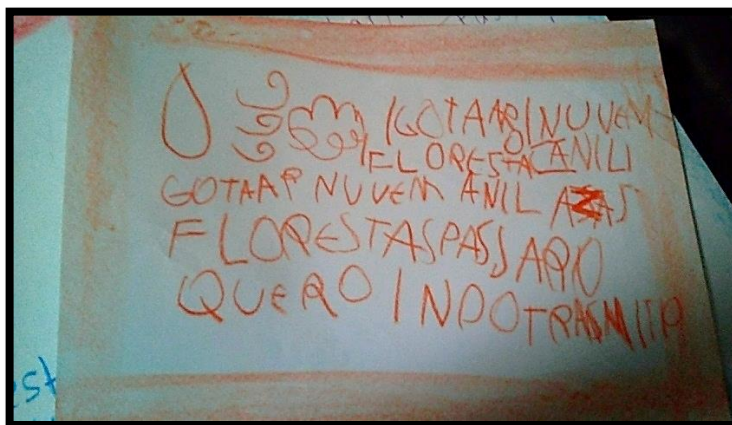 GOTA AR NUVEM
FLORESTA ANIL
GOTA AR NUVEM ANIL AZAS
FLORESTAS PASSARO
QUERO INDO TRASMITIR
est